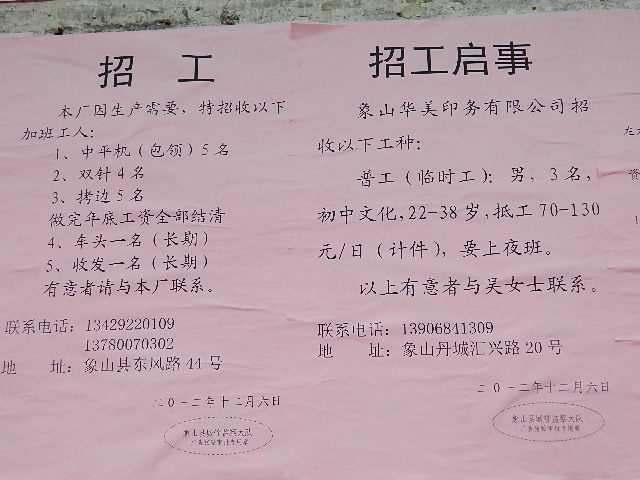 招 工
本厂因生产需要，特招收以下
加班工人：
1、中平机（包领）5名
2、双针4名
3、拷边5名
做完年底工资全部结清
4、车头一名（长期）
5、收发一名（长期）
有意者请与本厂联系。
联系电话：13429220109
13780070302
地 址：象山县东风路44号
二0一二年十二月六日
象山县城管监察大队
广告张贴审批专用章
招工启事
象山华美印务有限公司招
收以下工种：
普工（临时工）：男，3名，
初中文化，22-38岁，抵工70-130
元/日（计件），要上夜班。
以上有意者与吴女士联系。
联系电话：13906841309
地 址：象山丹城汇兴路20号
二0一二年十二月六日
象山县城管监察大队
广告张贴审批专用章